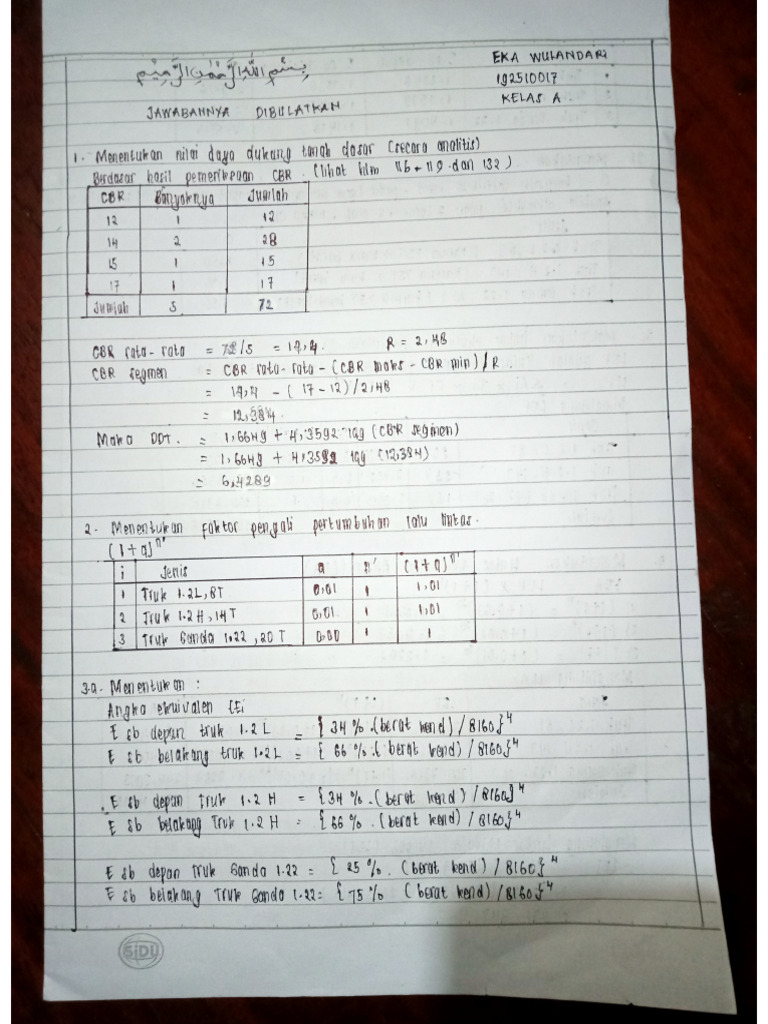 بِسْمِ اللهِ الرَّحْمٰنِ الرَّحِيْمِ
EKA WULANDARI
192510017
KELAS A.
JAWABANNYA DIBULATKAN
1. Menentukan nilai daya dukung tanah dasar (secara analitis)
Berdasar hasil pemeriksaan CBR. (lihat hlm 116 - 119 dan 132)
CBR Banyaknya Jumlah
12 1 12
14 2 28
15 1 15
17 1 17
Jumlah 5 72
CBR rata-rata = 72/5 = 14,4. R = 2,48
CBR segmen = CBR rata-rata - (CBR maks - CBR min) / R
= 14,4 - (17-12)/2,48
= 12,384.
Maka DDT. = 1,6649 + 4,3592 log (CBR segmen)
= 1,6649 + 4,3592 log (12,384)
= 6,4289
2. Menentukan faktor pengali pertumbuhan lalu lintas.
(1+a)ⁿ'
i Jenis a n' (1+a)ⁿ'
1 Truk 1.2L, 8T 0,01 1 1,01
2 Truk 1.2H, 14T 0,01 1 1,01
3 Truk Ganda 1.22, 20T 0,00 1 1
3.a. Menentukan :
Angka ekuivalen (Ei
E sb depan truk 1.2L = {34%.(berat kend) / 8160}⁴
E sb belakang truk 1.2L = {66%.(berat kend) / 8160}⁴
E sb depan Truk 1.2H = {34%.(berat kend) / 8160}⁴
E sb belakang Truk 1.2H = {66%.(berat kend) / 8160}⁴
E sb depan Truk Ganda 1.22 = {25%. (berat kend) / 8160}⁴
E sb belakang Truk Ganda 1.22 = {75% (berat kend) / 8160}⁴
SIDU